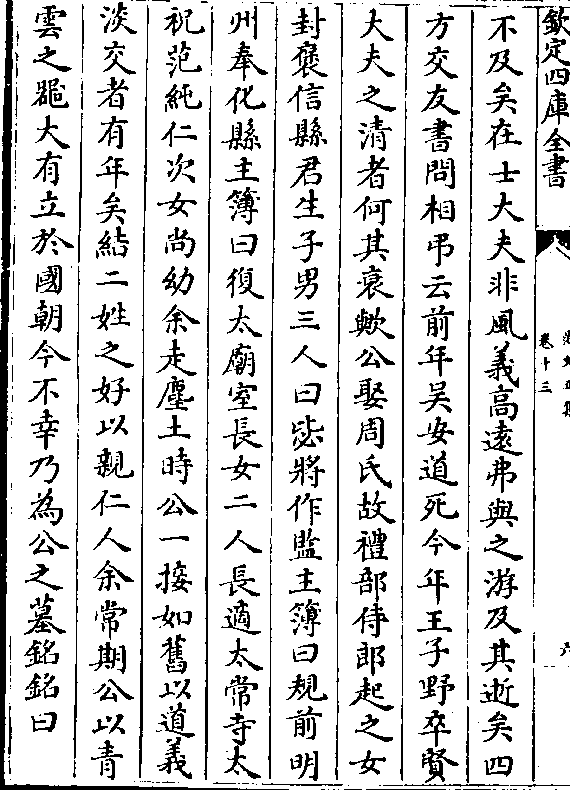 欽定四庫全書
卷十三
不及矣在士大夫非風義高遠弗與之游及其逝矣四
方交友書問相弔云前年吴安道死今年王子野卒賢
大夫之清者何其衰歟公娶周氏故禮部侍郎起之女
封襃信縣君生子男三人曰毖將作監主簿曰規前明
州奉化縣主簿曰復太廟室長女二人長適太常寺太
祝范純仁次女尚幼余走塵土時公一接如舊以道義
淡交者有年矣結二姓之好以親仁人余常期公以青
雲之噐大有立於國朝今不幸乃為公之墓銘銘曰